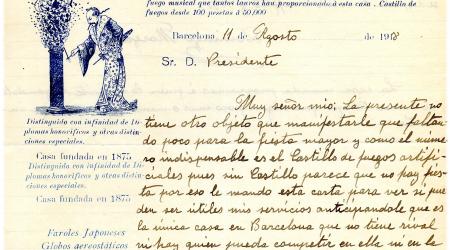 fuego musical que tantos lauros han proporcionado á esta casa. Castillo de
fuegos desde 100 pesetas á 50,000
Barcelona, 11 Agosto de 1918
Sr. D. Presidente
Muy señor mio: La presente no
tiene otro objeto que manifestarle que faltan
do poco para la fiesta mayor y como el núme
ro indispensable es el Castillo de fuegos artifi
ciales pues sin Castillo parece que no hay fies
ta por eso le mando esta carta para ver si pue
den ser útiles mis servicios anticipandole que es
la única casa en Barcelona que no tiene rival
ni hay quien pueda competir en ella ni en la
Distinguido con infinidad de Di-
plomas honoríficos y otras distin-
ciones especiales.
Casa fundada en 1875
Distinguido con infinidad de Di-
plomas honoríficos y otras distin-
ciones especiales.
Casa fundada en 1875
Faroles Japoneses
Globos aereostáticos